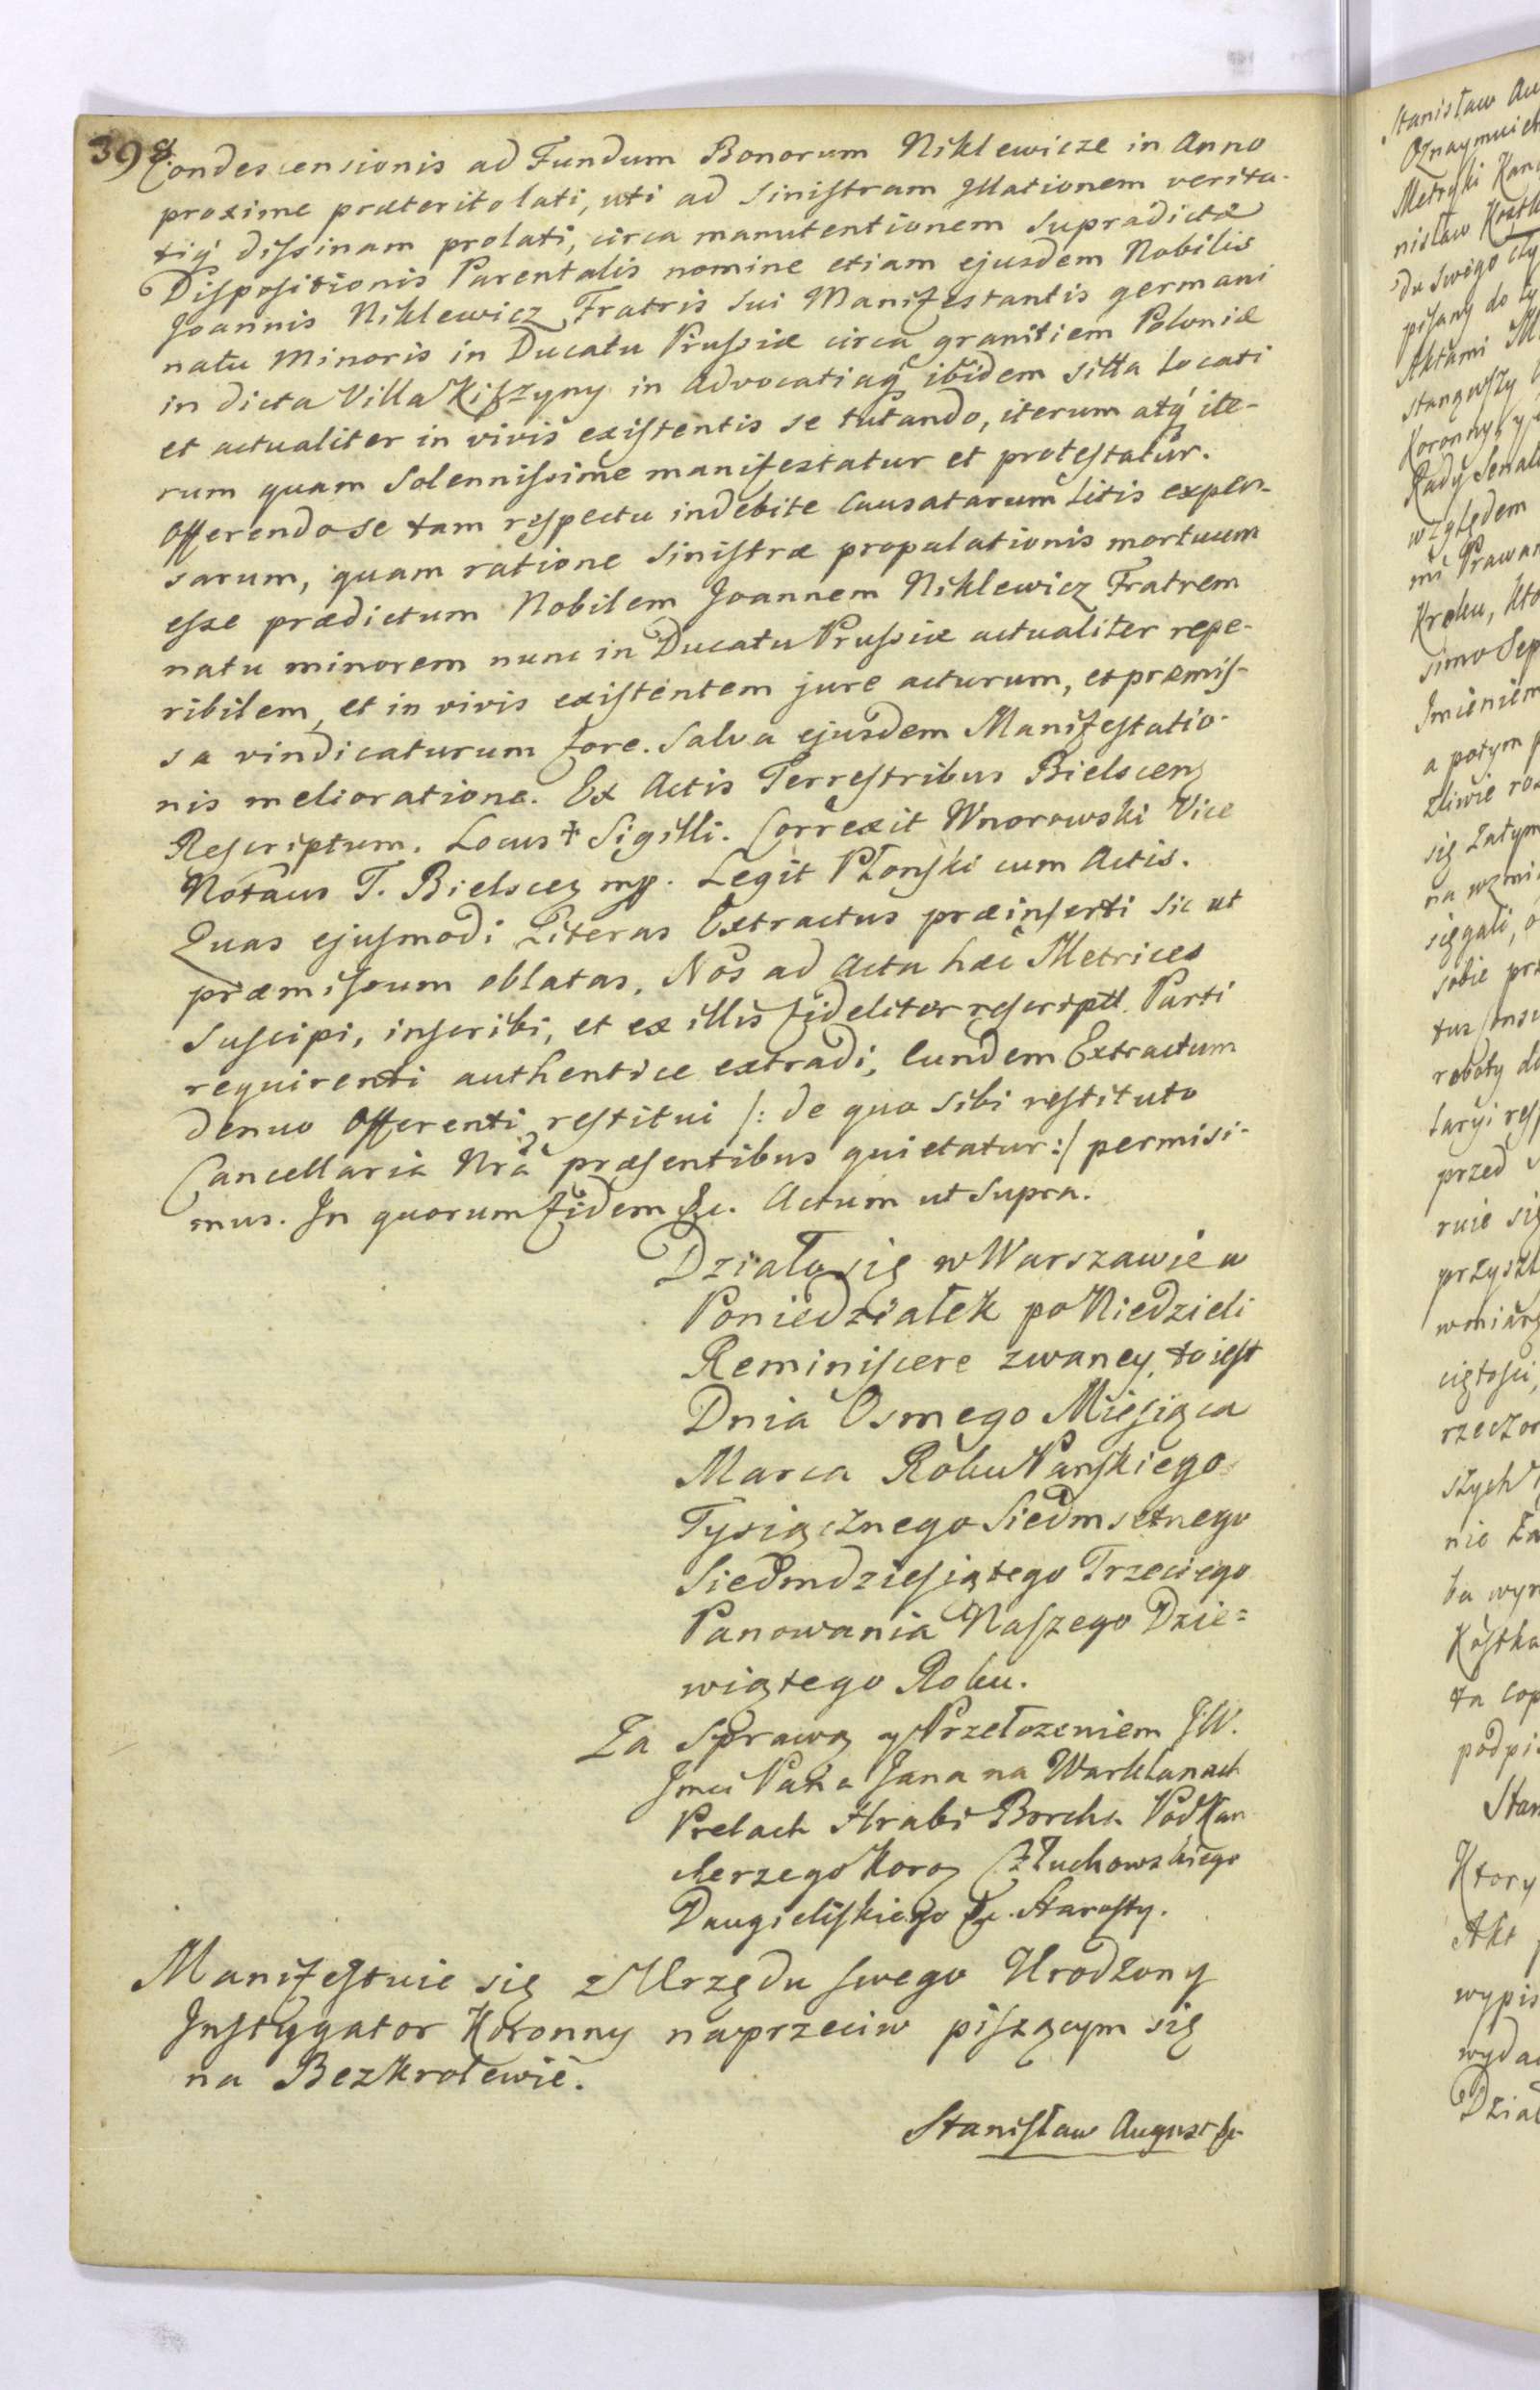 398.
Condescensionis ad Fundum Bonorum Niklewicze in Anno
proxime præterito lati, uti ad sinistram Illationem verita-
tiq́ dissinam prolati, circa manutentionem supradictæ
Dispositionis Parentalis nomine etiam ejusdem Nobilis
Joannis Niklewicz Fratris sui Manifestantis germani
natu Minoris in Ducatu Prussiæ circa granitiem Poloniæ
in dicta Villa Kiszyny in Advocatiaq́ ibidem sitta Locati
et actualiter in vivis existentis se tutando, iterum atq́ ite-
rum quam Solennissime manifestatur et protestatur.
Offerendo se tam respectu indebite Causatarum Litis expen-
sarum, quam ratione Sinistræ propalationis mortuum
esse prædictum Nobilem Joannem Niklewicz Fratrem
natu minorem nunc in Ducatu Prussiæ actualiter repe-
ribilem, et in vivis existentem jure acturum, et præmis-
sa vindicaturum fore. Salva ejusdem Manifestatio-
nis melioratione. Ex Actis Terrestribus Bielscen
Rescriptum. Locus + Sigilli. Correxit Wnorowski Vice
Notäus T. Bielscen mp. Legit Płonski cum Actis.
Quas ejusmodi Literas Extractus præinserti sic ut
præmissum oblatas, Nos ad Acta hæc Metrices
suscipi, inscribi, et ex illis fideliter rescriptt. Parti
requirenti authentice extradi, Eundem Extractum
denuo Offerenti restitui /: de quo sibi restituto
Cancellaria Nrã præsentibus quietatur :/ permisi-
mus. In quorum fidem &c. Actum ut supra.
Działo się w Warszawie w
Poniedziałek po Niedzieli
Reminiscere zwaney, to iest
Dnia Osmego Miesiąca
Marca Roku Panskiego
Tysiącznego Siedmsetnego
Siedmdziesiątego Trzeciego
Panowania Naszego Dzie=
wiątego Roku.
Za Sprawą y Przełozeniem JW.
Jmci Pana Jana na Warklanach
Prelach Hrabi Borcha PodKan
clerzego Koro Człuchowskiego
Daugieliskiego &c. Starosty.
Manifestuie się z Urzędu swego Urodzony
Instygator Koronny naprzeciw piszącym się
na Bezkrolewie.
Stanisław August
Stanisław
Oznaymuie
Metryki
nisław
du swego
pisany do
Aktami
Koronny
Rady
względem
a potym
sobie
roboty
przed
ruie
rzeczo
nie
podpi
Ktory
Akt
wypis